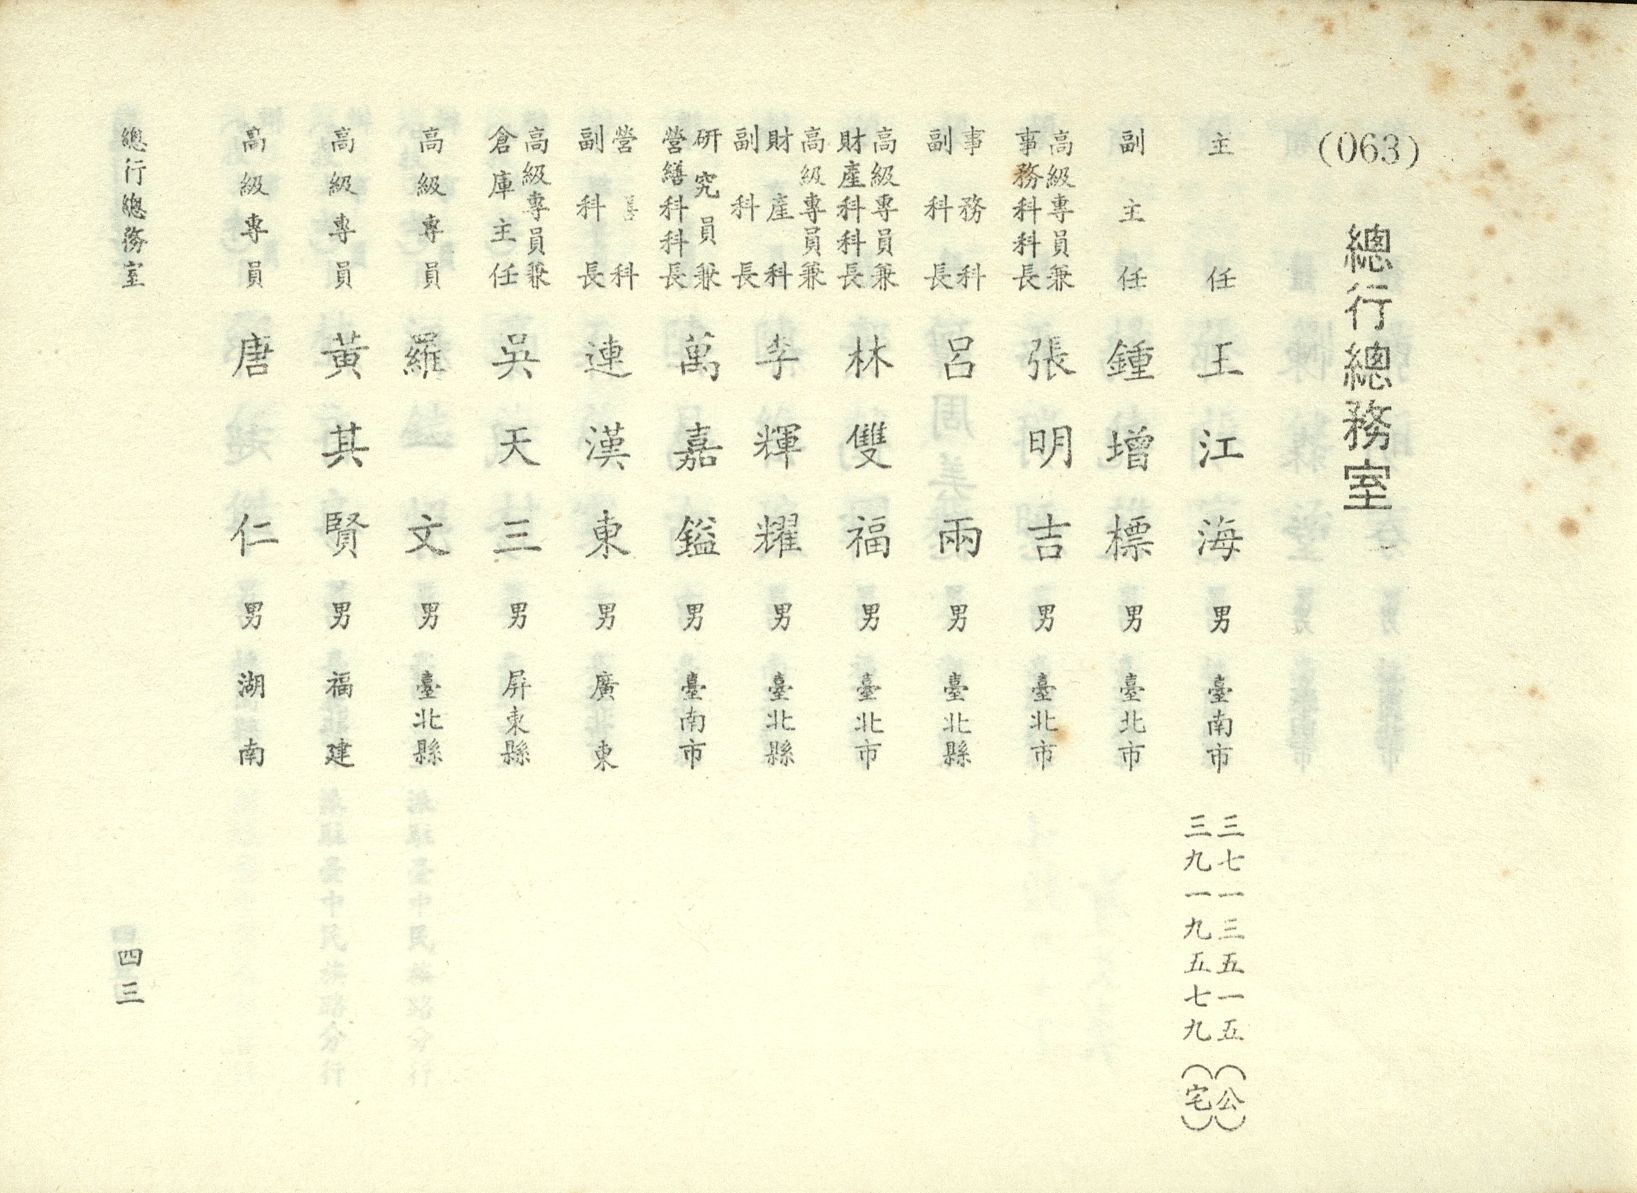 (063) 總行總務室
主任 王江海 男 臺南市 三七一三五一五(公) 三九一九五七九(宅)
副主任 鍾增標 男 臺北市
高級專員兼事務科科長 張明吉 男 臺北市
事務科副科長 呂雨 男 臺北縣
高級專員兼財產科科長 林雙福 男 臺北市
高級專員兼財產科副科長 李輝耀 男 臺北縣
研究員兼營繕科科長 萬嘉鎰 男 臺南市
營繕科副科長 連漢東 男 廣東
高級專員兼倉庫主任 吳天三 男 屏東縣
高級專員 羅文 男 臺北縣
高級專員 黃其賢 男 福建
高級專員 唐仁 男 湖南
總行總務室
四三